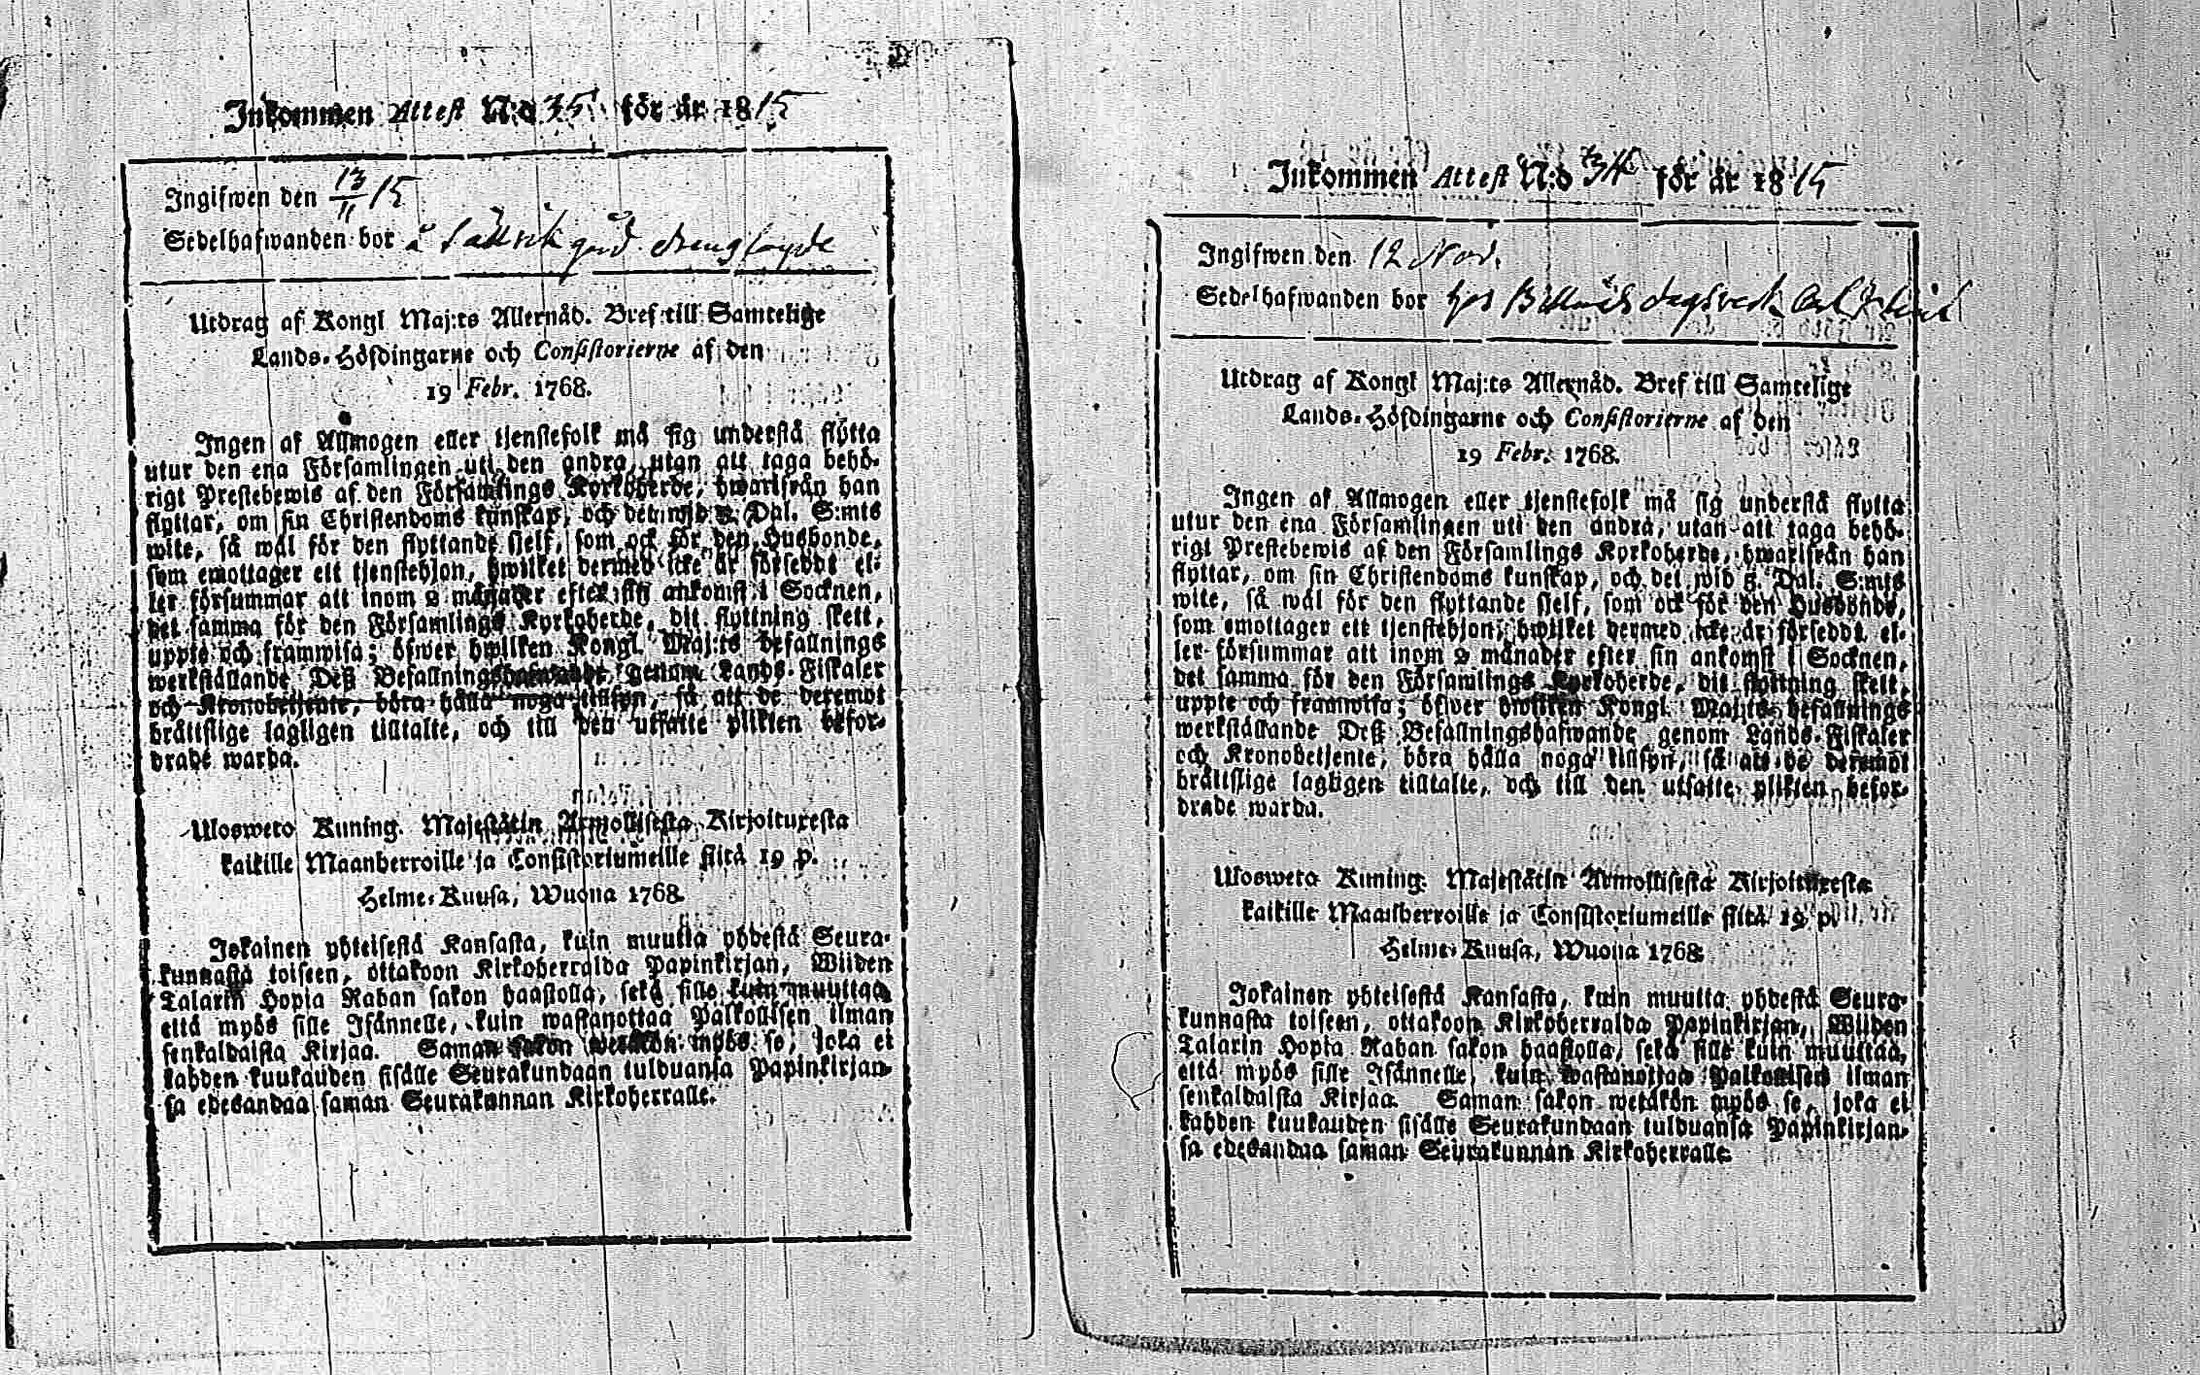 Inkommen Attest N:o 35 för år 1815
Ingifwen den 13/11 15
Sedelhafwanden bor å gård
Utdrag af Kongl Maj:ts Allernåd. Bref till Samtelige
Lands-Höfdingarne och Consistorierne af den
19 Febr. 1768.
Ingen af Allmogen eller tjenstefolk må sig understå flytta
utur den ena Församlingen uti den andra, utan att taga behö-
rigt Prestebewis af den Församlings Kyrkoherde, hwarifrån han
flyttar, om sin Christendoms kunskap, och det wid 5 Dal. S:mts
wite, så wäl för den flyttande sjelf, som ock för den Husbonde,
som emottager ett tjenstehjon, hwilket dermed icke är försedt el-
ler försummar att inom 2 månader efter sin ankomst i Socknen,
det samma för den Församlings Kyrkoherde, dit flyttning skett,
uppte och framwisa; öfwer hwilken Kongl. Maj:ts befallnings
werkställande Deß Befallningshafwande genom Lands-Fiskaler
och Kronobetjente, böra hålla noga tillsyn, så att de deremot
bråttslige lagligen tilltalte, och till den utsatte plikten befor-
drade warda.
Ulosweto Kuning. Majestätin Armollisesta Kirjoituxesta
kaikille Maanherroille ja Consistoriumeille siitä 19 p.
Helme-Kuusa, Wuona 1768.
Jokainen yhteisestä Kansasta, kuin muutta yhdestä Seura-
kunnasta toiseen, ottakoon Kirkoherralda Papinkirjan, Wiiden
Talarin Hopia Rahan sakon haastolla, sekä sille kuin muuttaa,
että myös sille Isännelle, kuin wastanottaa Palkollisen ilman
senkaldaista Kirjaa. Saman sakon wetäkön myös se, joka ei
kahden kuukauden sisälle Seurakundaan tulduansa Papinkirjan-
sa edesandaa saman Seurakunnan Kirkoherralle.
Inkommen Attest N:o 34 för år 1815
Ingifwen den 12 Nov.
Sedelhafwanden bor hos
Utdrag af Kongl Maj:ts Allernåd. Bref till Samtelige
Lands-Höfdingarne och Consistorierne af den
19 Febr. 1768.
Ingen af Allmogen eller tjenstefolk må sig understå flytta
utur den ena Församlingen uti den andra, utan att taga behö-
rigt Prestebewis af den Församlings Kyrkoherde, hwarifrån han
flyttar, om sin Christendoms kunskap, och det wid 5 Dal. S:mts
wite, så wäl för den flyttande sjelf, som ock för den Husbonde,
som emottager ett tjenstehjon, hwilket dermed icke är försedt el-
ler försummar att inom 2 månader efter sin ankomst i Socknen,
det samma för den Församlings Kyrkoherde, dit flyttning skett,
uppte och framwisa; öfwer hwilken Kongl. Maj:ts befallnings
werkställande Deß Befallningshafwande genom Lands-Fiskaler
och Kronobetjente, böra hålla noga tillsyn, så att de deremot
bråttslige lagligen tilltalte, och till den utsatte plikten befor-
drade warda.
Ulosweto Kuning. Majestätin Armollisesta Kirjoituxesta
kaikille Maanherroille ja Consistoriumeille siitä 19 p.
Helme-Kuusa, Wuona 1768.
Jokainen yhteisestä Kansasta, kuin muutta yhdestä Seura-
kunnasta toiseen, ottakoon Kirkoherralda Papinkirjan, Wiiden
Talarin Hopia Rahan sakon haastolla, sekä sille kuin muuttaa,
että myös sille Isännelle, kuin wastanottaa Palkollisen ilman
senkaldaista Kirjaa. Saman sakon wetäkön myös se, joka ei
kahden kuukauden sisälle Seurakundaan tulduansa Papinkirjan-
sa edesandaa saman Seurakunnan Kirkoherralle.